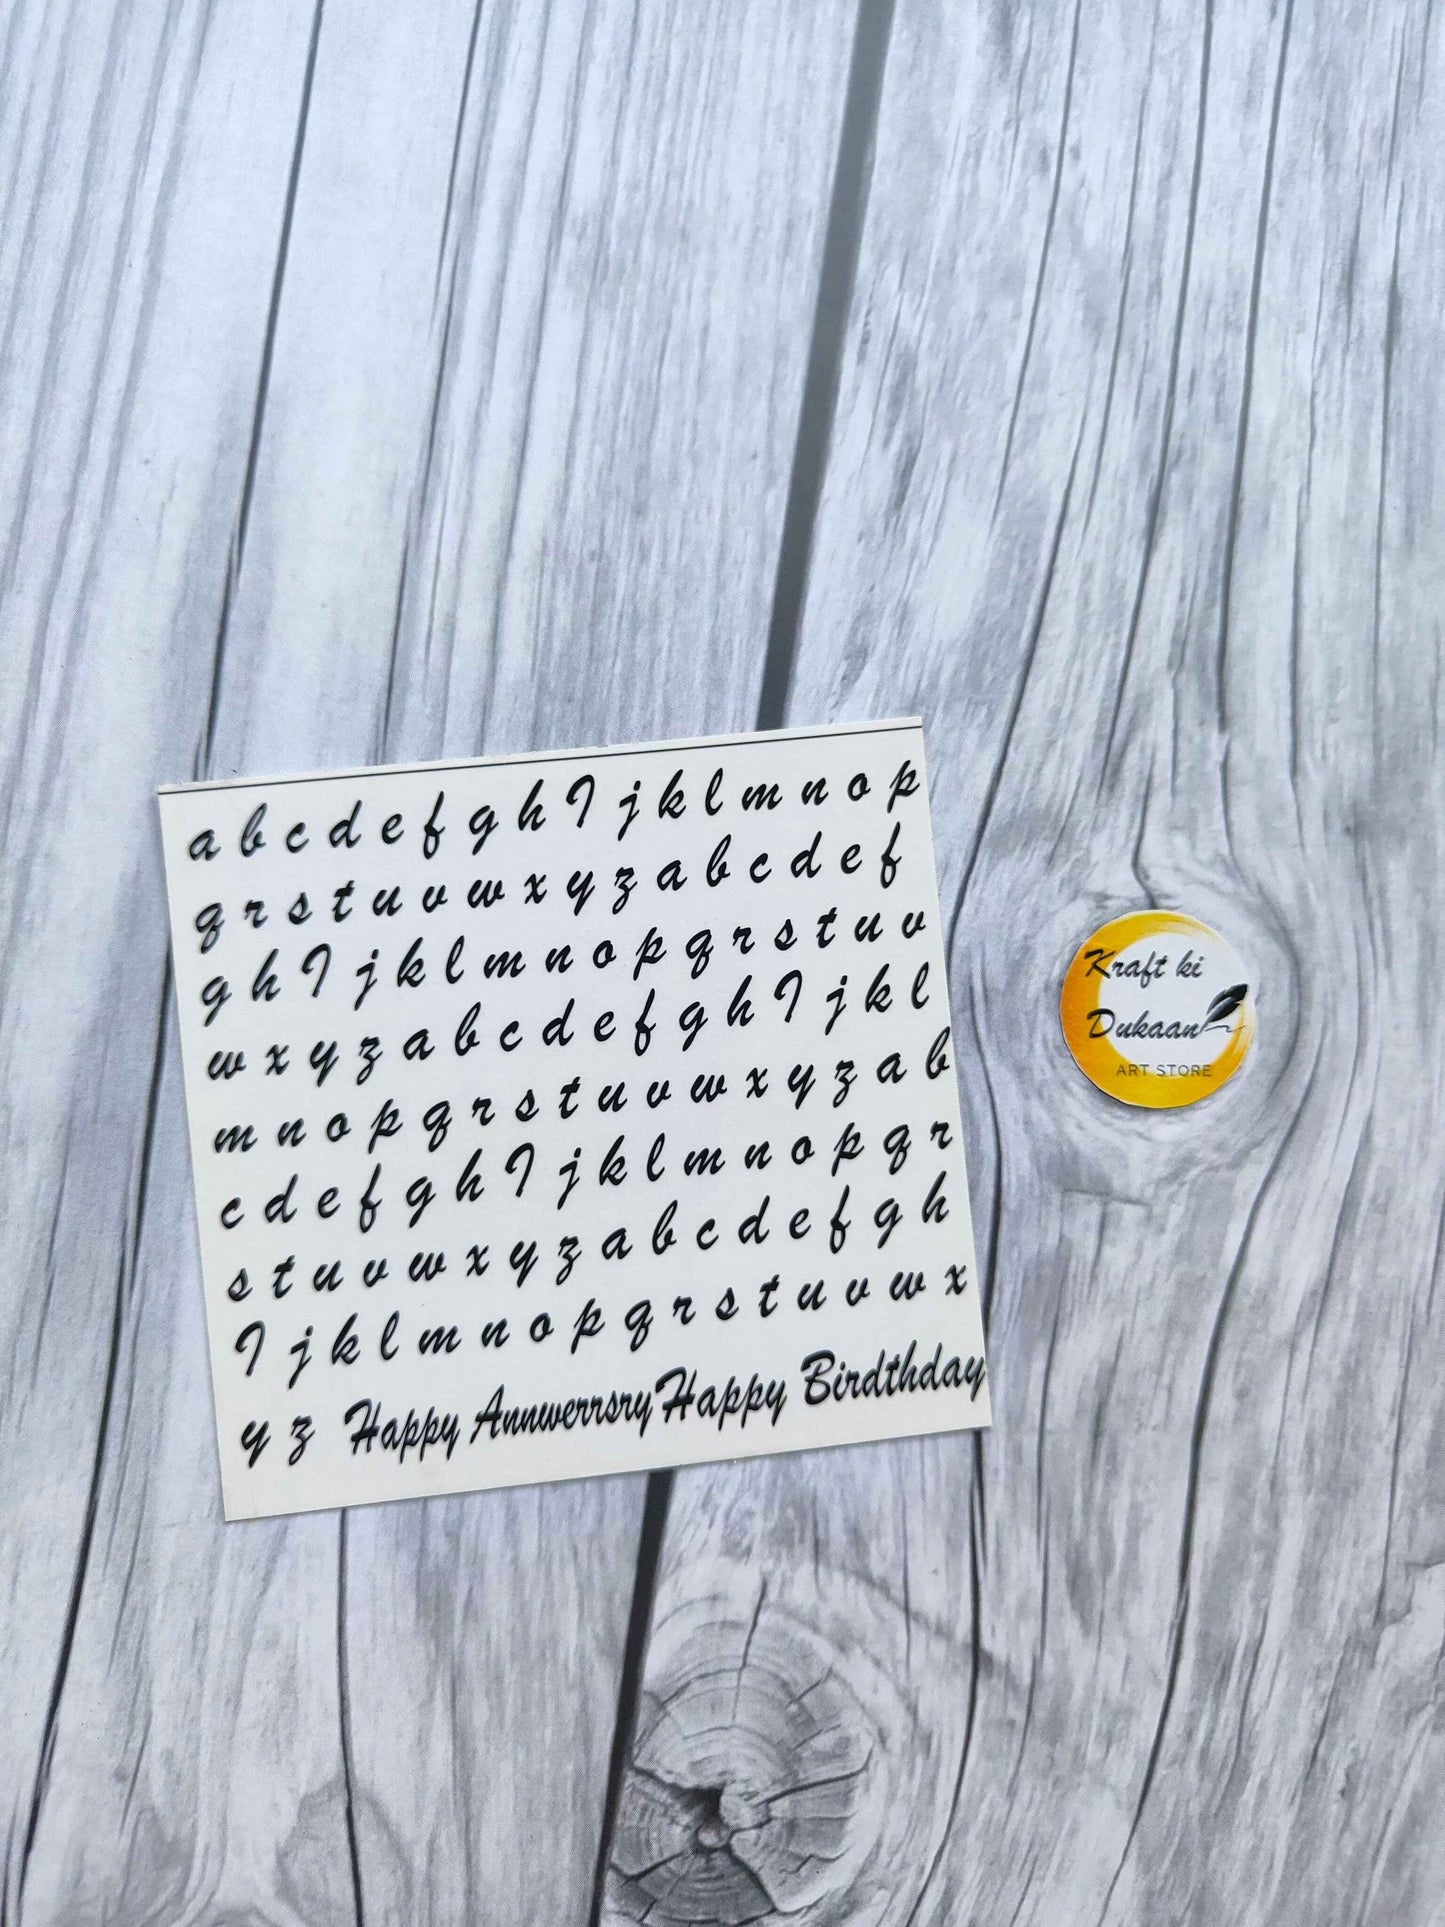 a b c d e f g h I j k l m n o p
q r s t u v w x y z a b c d e f
g h I j k l m n o p q r s t u v
w x y z a b c d e f g h I j k l
m n o p q r s t u v w x y z a b
c d e f g h I j k l m n o p q r
s t u v w x y z a b c d e f g h
I j k l m n o p q r s t u v w x
y z Happy Annwerrsry Happy Birdthday
Kraft ki
Dukaan
ART STORE